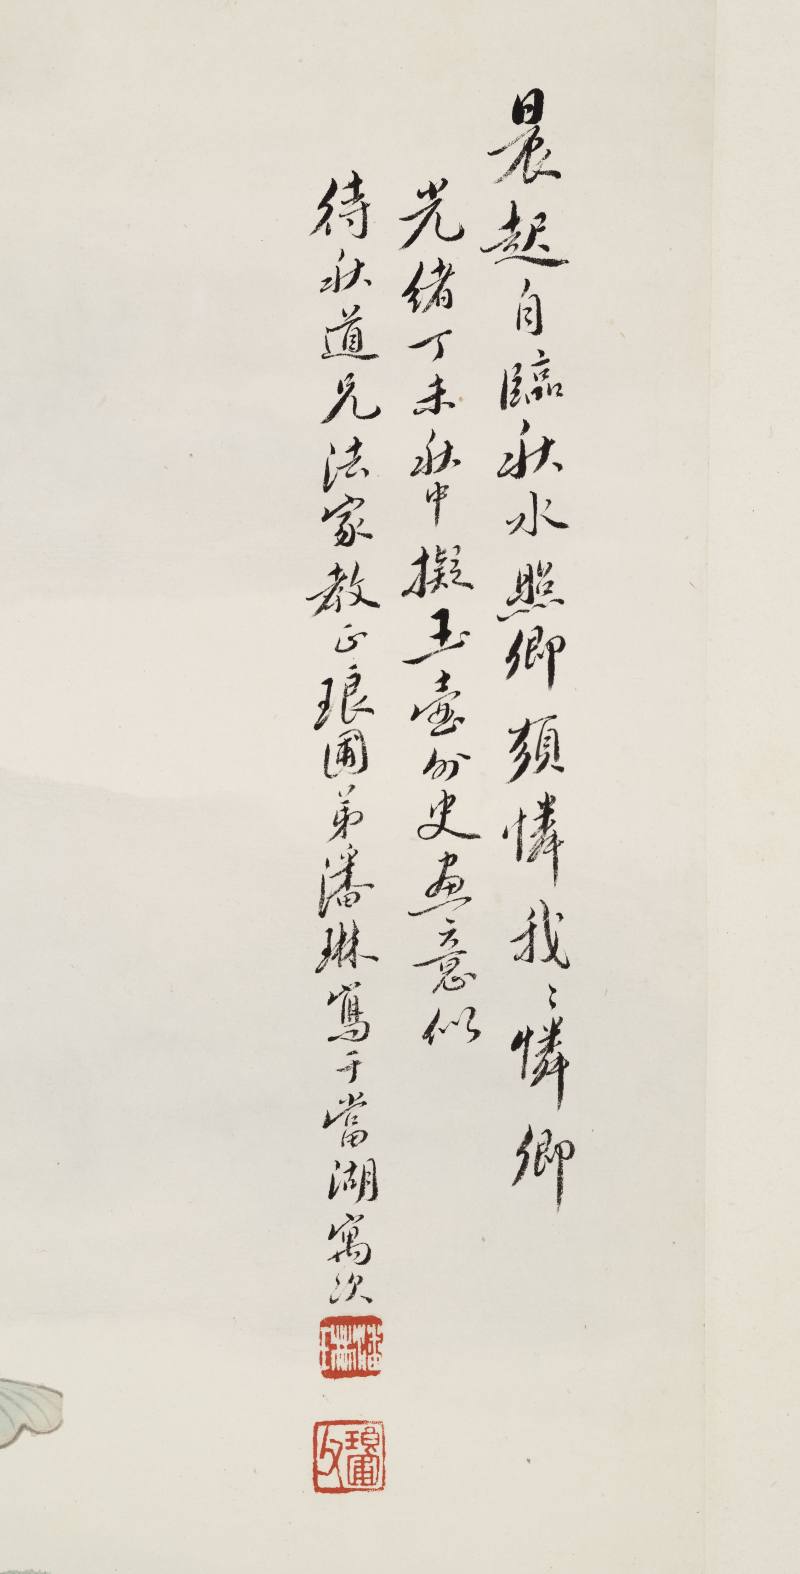 晨起自臨秋水照卿須憐我〻憐卿
光緒丁未秋中擬玉壺外史畫意似
待秋道兄法家教正琅圃弟潘琳寫于當湖寓次
潘琳